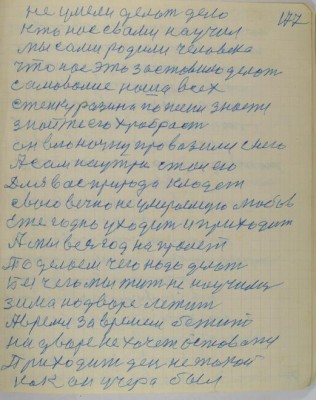 177
не умели делат дело
кто нас свами научил
мы сами родили человека
что нас это заставило делат
самоволие наша всех
стенку разина по песни знаети
знайте его храброст
он в мо ночку провазили снего
А сам на утри
Для вас природа кладет
свою вечно не умераюшую любов
еже годно уходит и приходит
А мы вся год на пролет
То делаем чего надо делат
Без чего мы жит не научилис
зима на дваре лежит
А время за время бежит
на дваре не хочет астоват
Приходит ден не такой
как он учера был